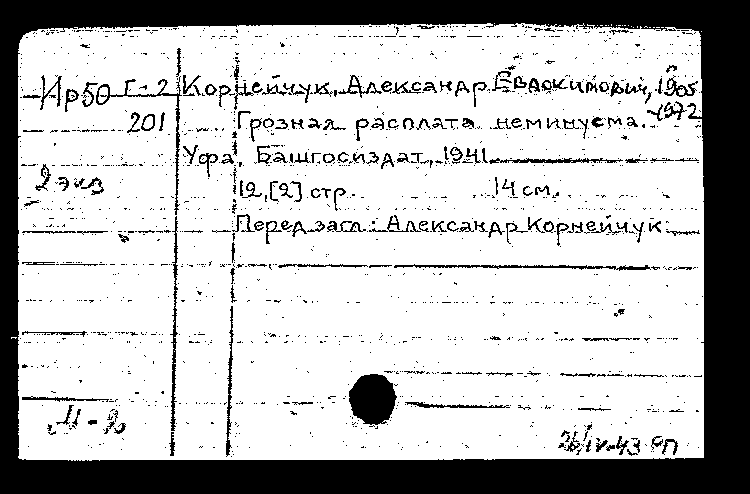 Ир50 Г-2 Корнейчук, Александр Евдокимович, 1905
201 Грозная расплата неминуема. -1972
Уфа, Башгосиздат, 1941.
2 экз 12, [2] стр. 14 см.
Перед загл: Александр Корнейчук.
М-2
26/IV-43 РП